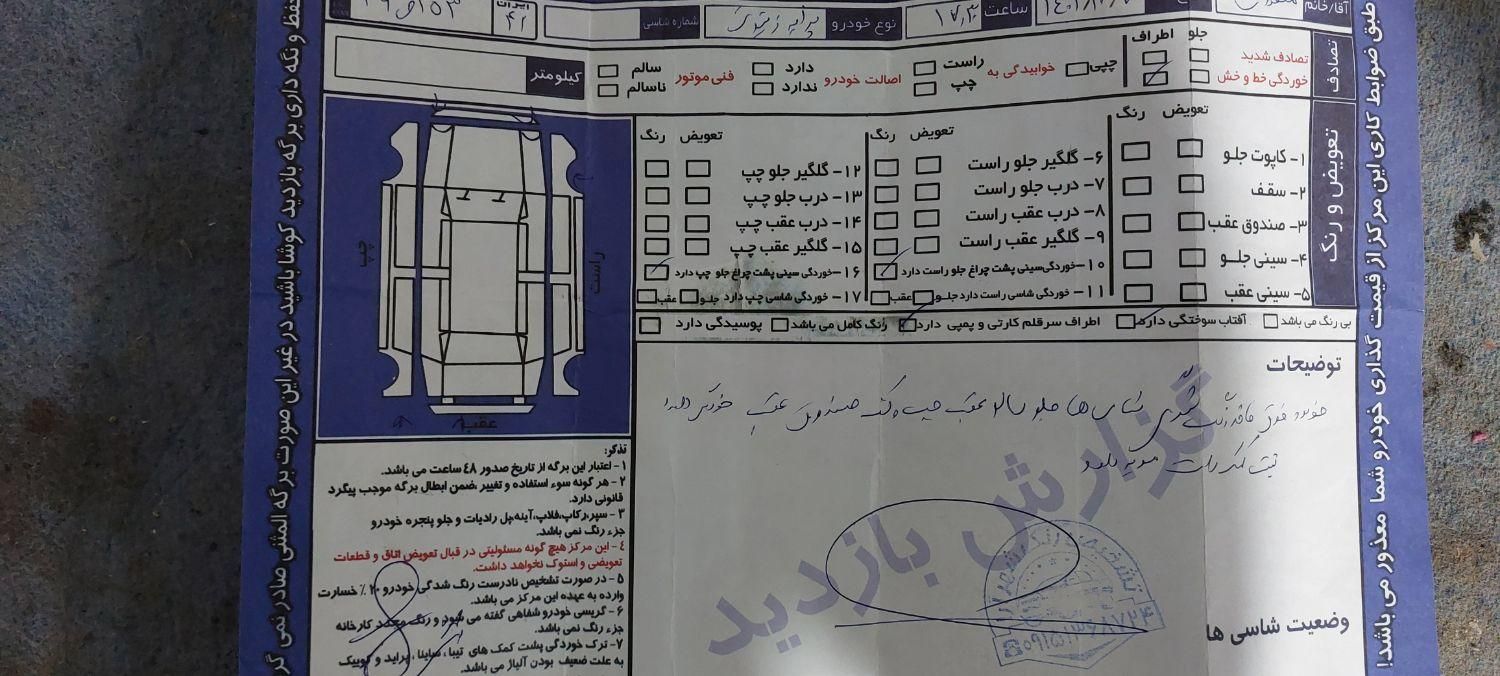 آقا/خانم
ساعت ۱۷:۳۰
نوع خودرو پراید زیتونی
شماره شاسی
ایران ۴۱
طبق ضوابط کاری این مرکز از قیمت گذاری خودرو شما معذور می باشد!
تصادف
جلو اطراف
تصادف شدید
خوردگی خط و خش
چپی
خوابیدگی به راست چپ
اصالت خودرو دارد ندارد
فنی موتور سالم ناسالم
کیلومتر
تعویض و رنگ
تعویض رنگ
۱- کاپوت جلو
۲- سقف
۳- صندوق عقب
۴- سینی جلو
۵- سینی عقب
تعویض رنگ
۶- گلگیر جلو راست
۷- درب جلو راست
۸- درب عقب راست
۹- گلگیر عقب راست
۱۰- خوردگی سینی پشت چراغ جلو راست دارد
۱۱- خوردگی شاسی راست دارد جلو عقب
تعویض رنگ
۱۲- گلگیر جلو چپ
۱۳- درب جلو چپ
۱۴- درب عقب چپ
۱۵- گلگیر عقب چپ
۱۶- خوردگی سینی پشت چراغ جلو چپ دارد
۱۷- خوردگی شاسی چپ دارد جلو عقب
بی رنگ می باشد
آفتاب سوختگی دارد
اطراف سرقلم کارتی و پمپی دارد
رنگ کامل می باشد
پوسیدگی دارد
راست
چپ
عقب
توضیحات
خودرو فوق فاقد رنگ شدگی شاسی ها جلو سالم عقب چپ و کف صندوق عقب خوردگی دارد
گزارش بازدید
وضعیت شاسی ها
۰۹۱۵۱۳۶۸۷۲۴
تذکر:
۱- اعتبار این برگه از تاریخ صدور ۴۸ ساعت می باشد.
۲- هر گونه سوء استفاده و تغییر ،ضمن ابطال برگه موجب پیگرد
قانونی دارد.
۳- سپر،رکاب،فلاپ،آینه،پل رادیات و جلو پنجره خودرو
جزء رنگ نمی باشد.
۴- این مرکز هیچ گونه مسئولیتی در قبال تعویض اتاق و قطعات
تعویضی و استوک نخواهد داشت.
۵- در صورت تشخیص نادرست رنگ شدگی خودرو ۲۰٪ خسارت
وارده به عهده این مرکز می باشد.
۶- گریسی خودرو شفاهی گفته می شود و رنگ مجدد کارخانه
جزء رنگ نمی باشد.
۷- ترک خوردگی پشت کمک های تیبا ، ساینا ، پراید و کوییک
به علت ضعیف بودن آلیاژ می باشد.
حفظ و نگه داری برگه بازدید کوشا باشید در غیر این صورت برگه المثنی صادر نمی گر